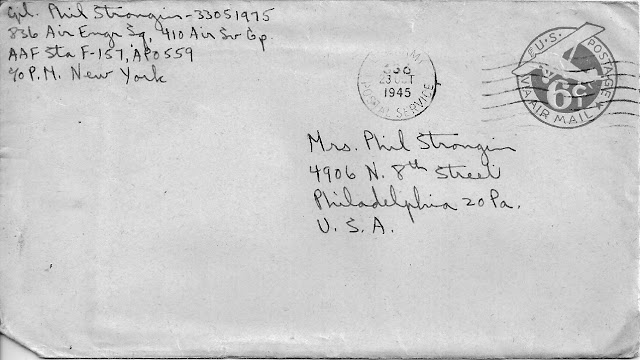 Cpl. Phil Strongin - 33051975
836 Air Engr Sq, 410 Air Sv Gp.
AAF Sta F-157, APO 559
℅ P.M. New York
558
23 OCT
1945
POSTAL SERVICE
U.S. POSTAGE
6¢
VIA AIR MAIL
Mrs. Phil Strongin
4906 N. 8th Street
Philadelphia 20 Pa.
U. S. A.